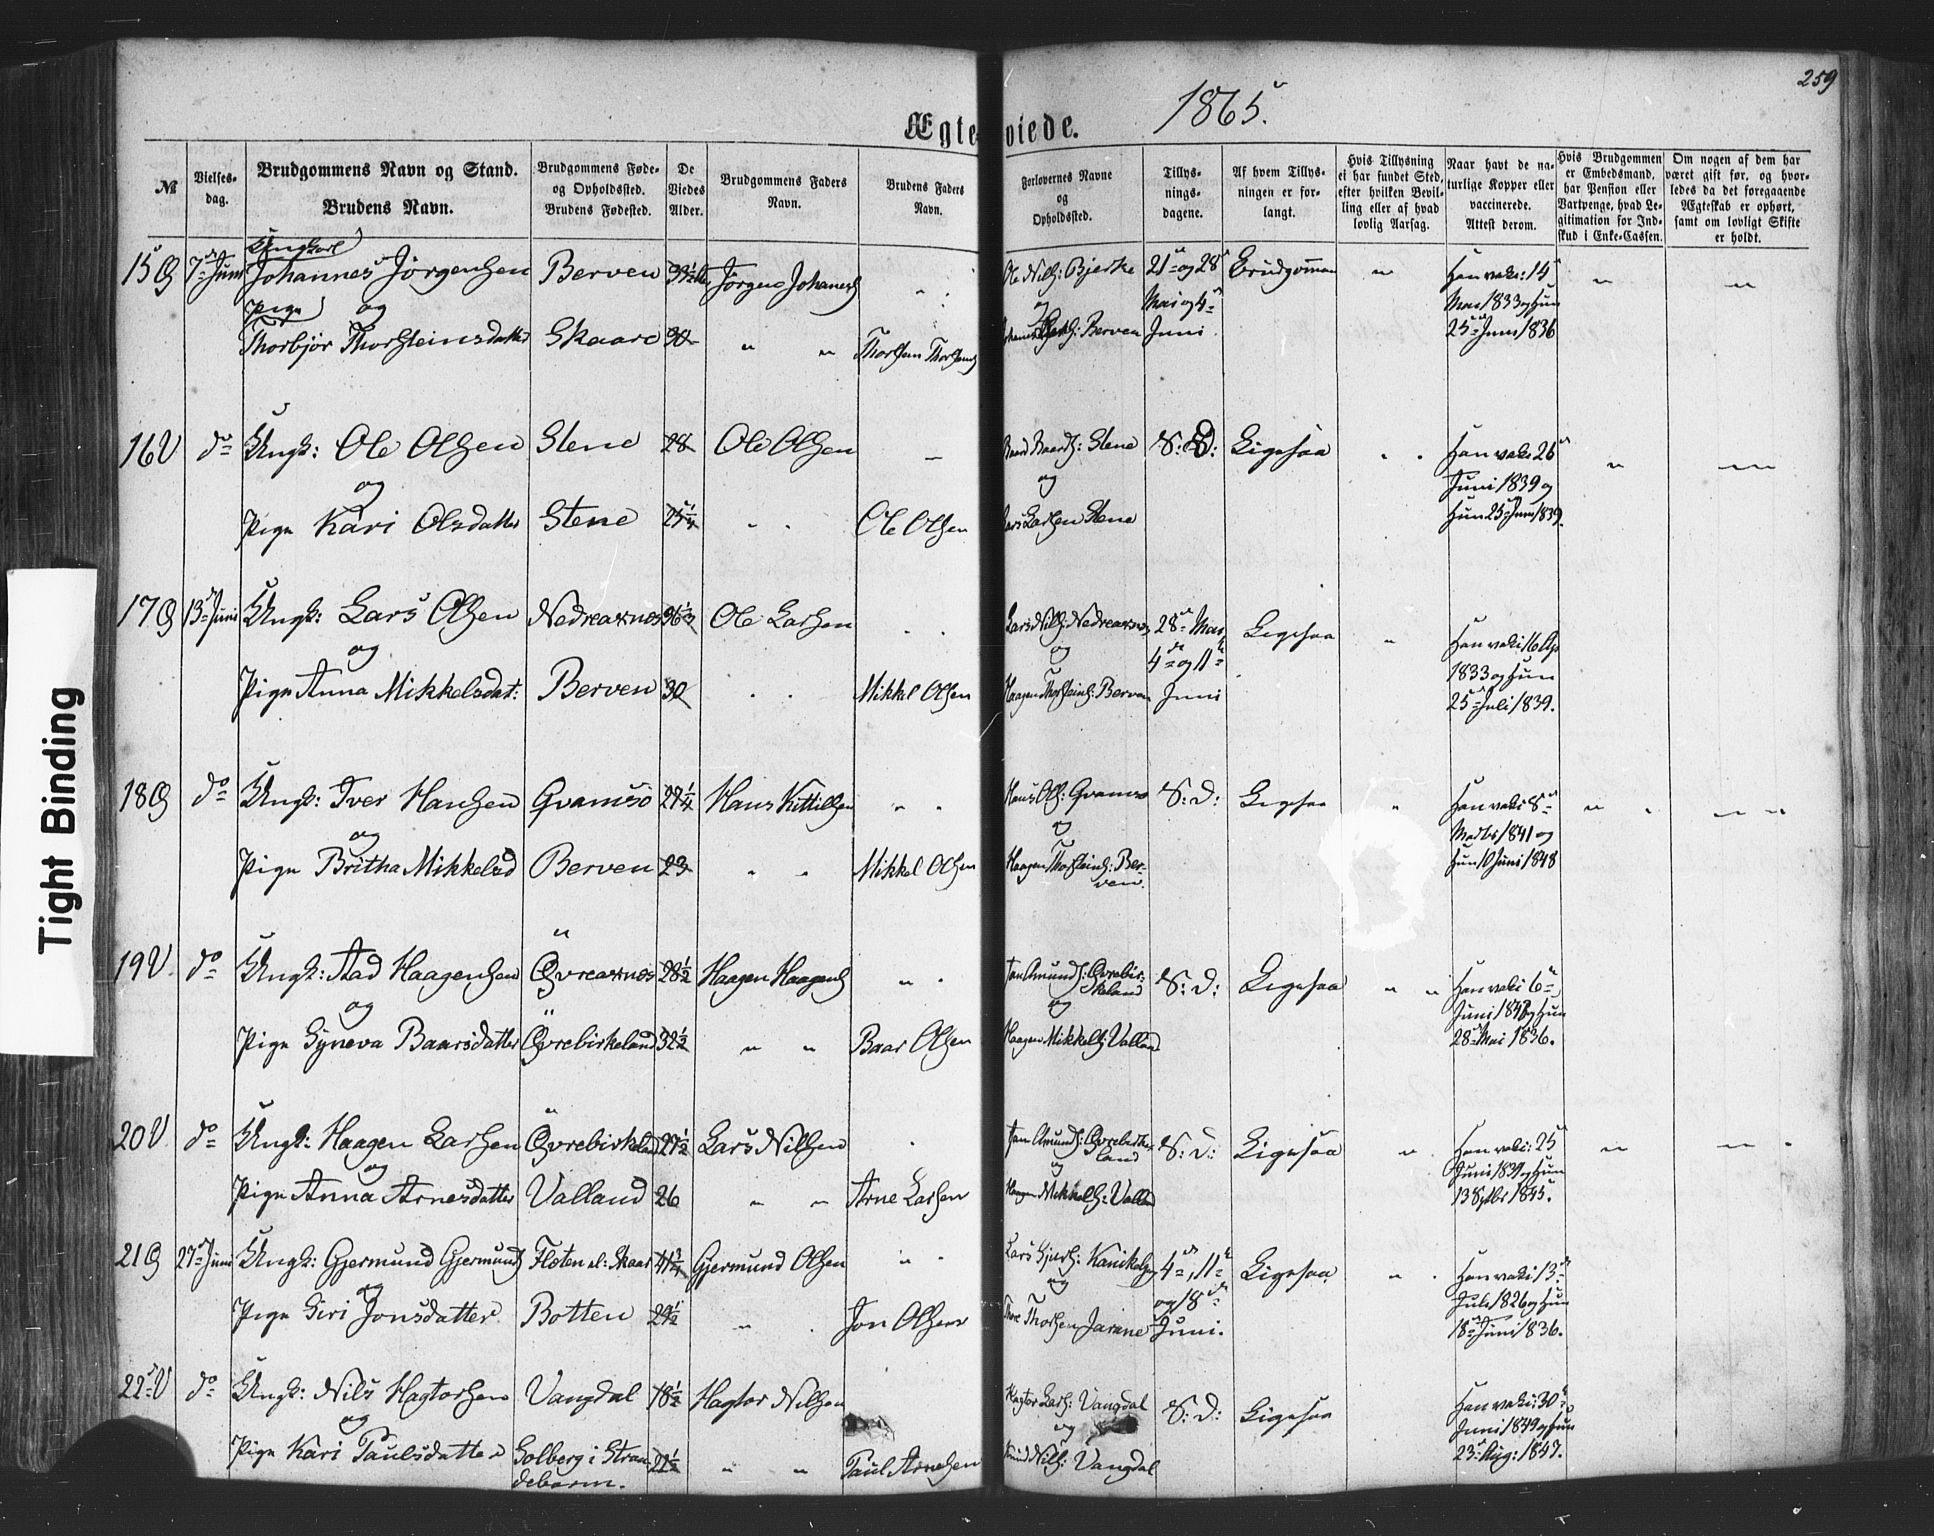 259
1865.
Ægteviede.
№
Vielses-
dag.
Brudgommens Navn og Stand.
Brudens Navn.
Brudgommens Føde-
og Opholdssted.
Brudens Fødested.
De
Viedes
Alder.
Brudgommens Faders
Navn.
Brudens Faders
Navn.
Forlovernes Navne
og
Opholdssted.
Tillys-
nings-
dagene.
Af hvem Tillys-
ningen er for-
langt.
Hvis Tillysning
ei har fundet Sted,
efter hvilken Bevil-
ling eller af hvad
lovlig Aarsag.
Naar havt de na-
turlige Kopper eller
vaccinerede.
Attest derom.
Hvis Brudgommen
er Embedsmand,
har Pension eller
Vartpenge, hvad Le-
gitimation for Ind-
skud i Enke-Cassen.
Om nogen af dem har
været gift før, og hvor-
ledes da det foregaaende
Ægteskab er ophørt,
samt om lovligt Skifte
er holdt.
15 G 7de Juni Ungkarl Johannes Jørgensen Berven Jørgen Johanness Ole Nils: Bjerke 21 og 28 Brudgommen Han vaks: 14
Pige og og Mai og 4de Mai 1833 og Hun
Thorbjør Thorsteinsdatter Skaare 30 " " Berven Juni 25de Juni 1836
16 V do Ungk: Ole Olsen Stene 28 Ole Olsen Stene S: D: Ligesaa Han vaks: 26
og og Juni 1839 og
Pige Kari Olsdatter Stene 25 1/4 Ole Olsen Lars Larsen Stene Hun 25de Juni 1839.
17 G 13de Juni Ungk: Lars Olsen Nedreaxnes Ole Larsen Lars Nils: Nedreaxnes 28de Mai Ligesaa Han vaks: 16
og og 4de og 11te 1833 og Hun
Pige Anna Mikkelsdat: Berven 30 Mikkel Olsen Haagen Thorsteins: Berven Juni 25de Juli 1839.
18 G do Ungk: Iver Hansen Qvamsø 27 1/4 Hans Kittilsen Hans Ols: Qvamsø S: D: Ligesaa Han vaks: 8de
og og 1841 og
Pige Britha Mikkelsd Berven 23 " " Mikkel Olsen Haagen Thorsteins: Ber- Hun 10 Juni 1848
ven.
19 V. do Ungk: Aad Haagensen Øvreaxnes 28 1/2 Haagen Haagens Jon Amunds: Øvrebir- S: D: Ligesaa Han vaks: 6te
keland
og og Juni og Hun
Pige Syneva Baarsdatter Øvrebirkeland 32 1/2 " " Baar Olsen Haagen Mikkels: Valland 28de Mai 1836.
20 V do Ungk: Haagen Larsen Øvrebirkeland 27 1/2 Lars Nilsen Jon Amunds: Øvrebirke- S: D: Ligesaa Han vaks: 25
land
og og Juni 1839 og Hun
Pige Anna Arnesdatter Valland 26 " " Arne Larsen Haagen Mikkels: Valland 13 Septbr 1845.
21 G 27de Juni Ungk: Gjermund Gjermunds Fløten el: Skaar Gjermund Olsen Lars 4de, 11te Ligesaa Han vaks: 13de
og og og 18de Juli 1826 og Hun
Pige Siri Jonsdatter Botten 29 1/2 " Jon Olsen Thorsen Jarane Juni. 18de Juni 1836.
22 V do Ungk: Nils Hagtorsen Vangdal 18 1/2 Hagtor Nilsen Hagtor Lars: Vangdal S: D: Ligesaa Han vaks: 30te
og og Juni 1849 og Hun
Pige Kari Paulsdatter Solberg i Stran- 21 1/2 " " Paul Arnesen Nils: Vangdal 23de Aug: 1847.
debarm.
Tight Binding